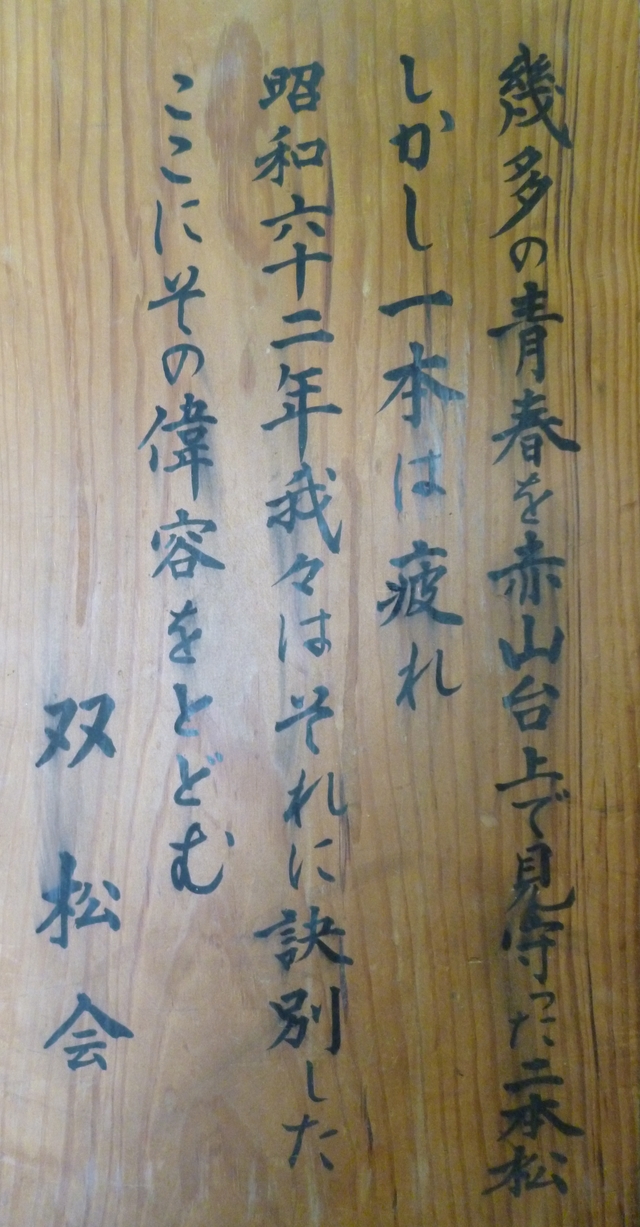 幾多の青春を赤山台上で見守った二本松
しかし一本は疲れ
昭和六十二年我々はそれに訣別した
ここにその偉容をとどむ
双松会